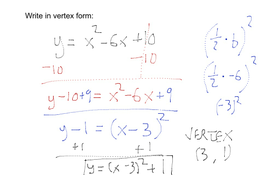 Write in vertex form:
y = x² - 6x + 10
-10 -10
y - 10 + 9 = x² - 6x + 9
y - 1 = (x - 3)²
+1 +1
y = (x - 3)² + 1
(1/2 · b)²
(1/2 · -6)²
(-3)²
VERTEX
(3, 1)